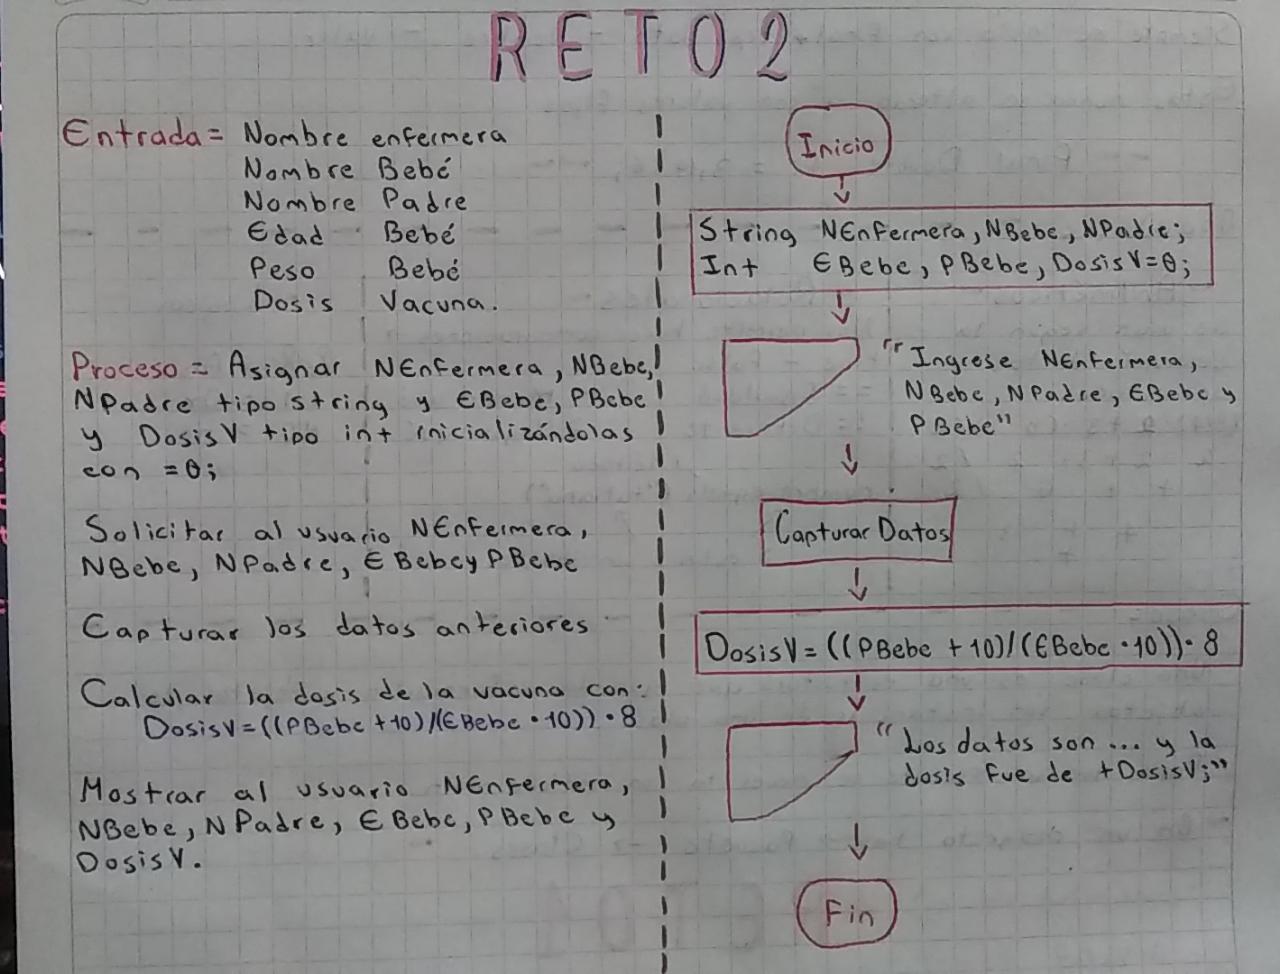 RETO 2
Entrada = Nombre enfermera
Nombre Bebé
Nombre Padre
Edad Bebé
Peso Bebé
Dosis Vacuna.
Proceso = Asignar NEnfermera, NBebe,
NPadre tipo string y EBebe, PBebe
y DosisV tipo int inicializándolas
con =0;
Solicitar al usuario NEnfermera,
NBebe, NPadre, EBebe y PBebe
Capturar los datos anteriores
Calcular la dosis de la vacuna con:
DosisV = ((PBebe + 10)/(EBebe · 10)) · 8
Mostrar al usuario NEnfermera,
NBebe, NPadre, EBebe, PBebe y
DosisV.
Inicio
String NEnfermera, NBebe, NPadre;
Int EBebe, PBebe, DosisV=0;
"Ingrese NEnfermera,
NBebe, NPadre, EBebe y
PBebe"
Capturar Datos
DosisV = ((PBebe + 10)/(EBebe · 10)) · 8
"Los datos son ... y la
dosis fue de +DosisV;"
Fin